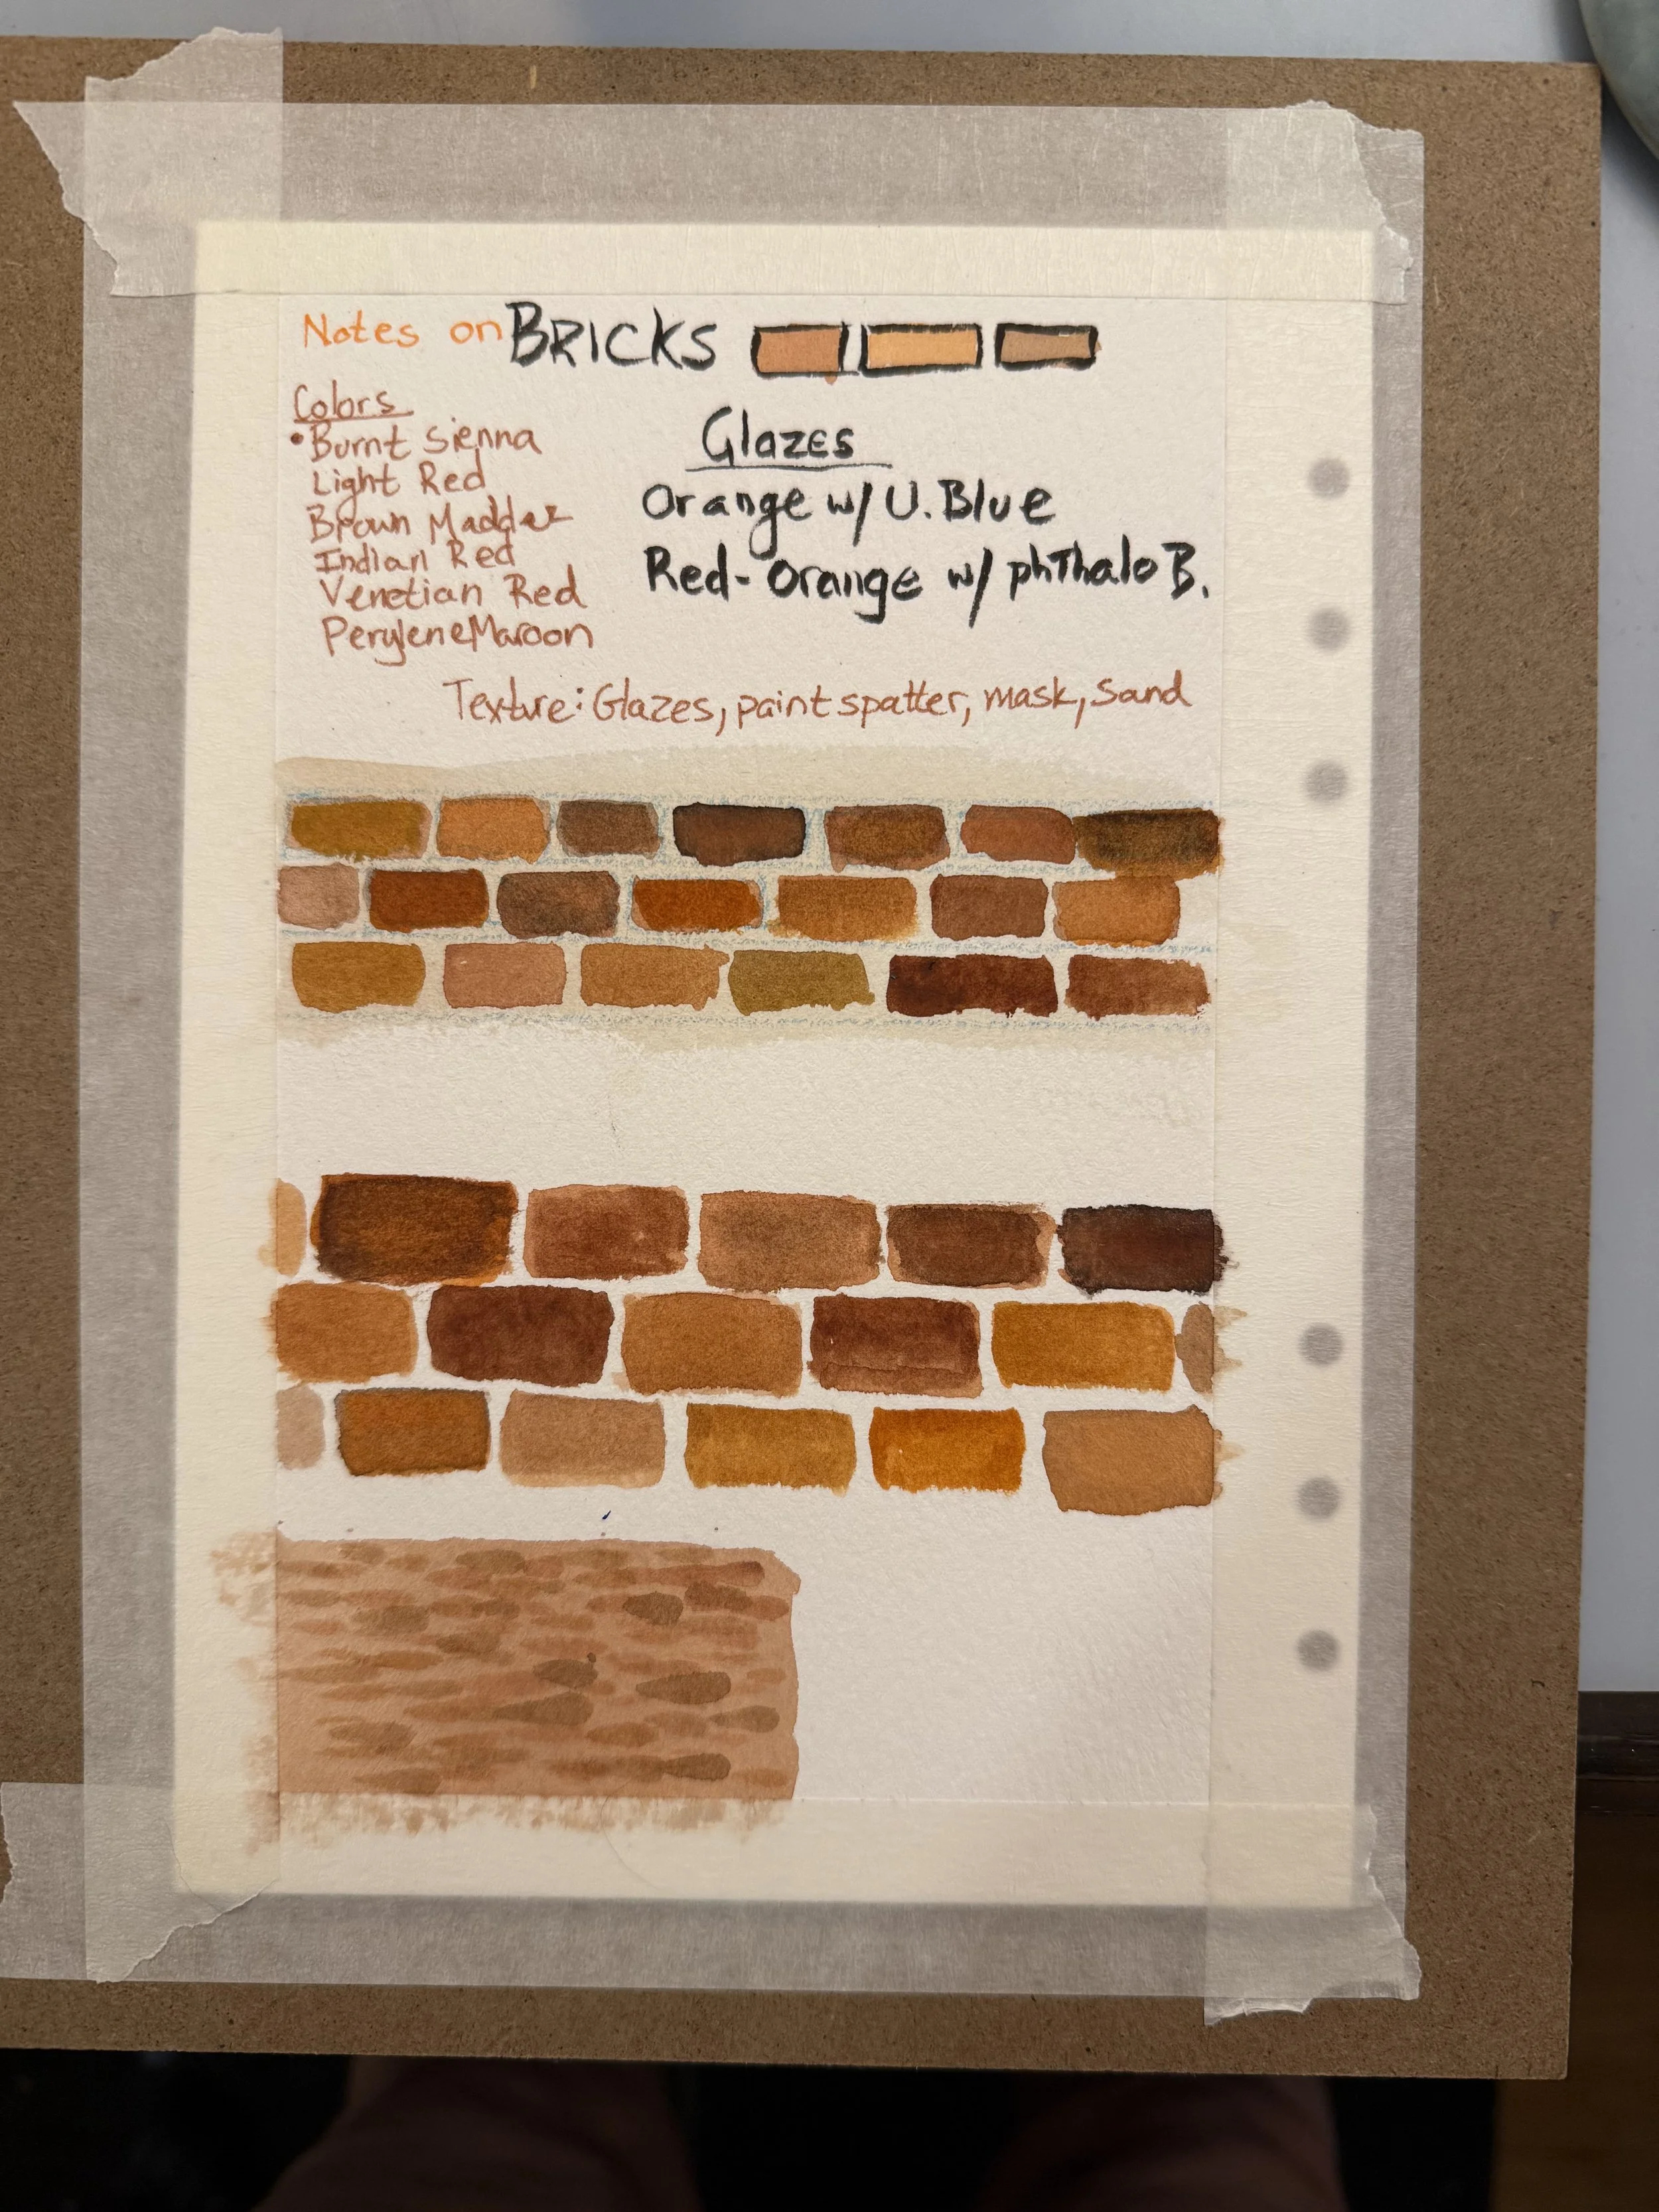 Notes on BRICKS
Colors
• Burnt Sienna
Light Red
Brown Madder
Indian Red
Venetian Red
Perylene Maroon
Glazes
Orange w/ U. Blue
Red-Orange w/ phThalo B.
Texture: Glazes, paint spatter, mask, Sand